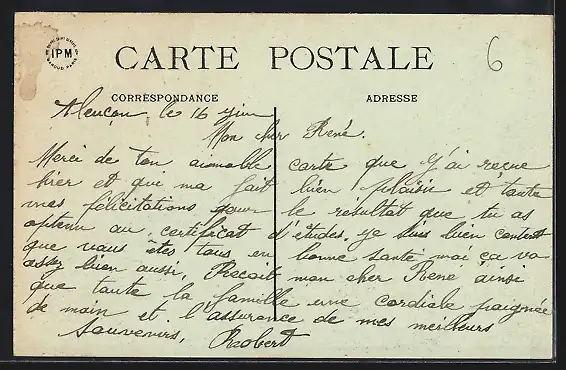 IPM
6
CARTE POSTALE
CORRESPONDANCE
ADRESSE
Alençon, le 16 juin
Mon cher René.
Merci de ton aimable carte que j'ai reçue
hier et qui ma fait bien plaisir et toutes
mes félicitations pour le résultat que tu as
obtenu au certificat d'études. je suis bien content
que vous êtes tous en bonne santé moi ça va
assez bien aussi, Recoit mon cher René ainsi
que toute la famille une cordiale poignée
de main et l'assurance de mes meilleurs
souvenirs, Robert